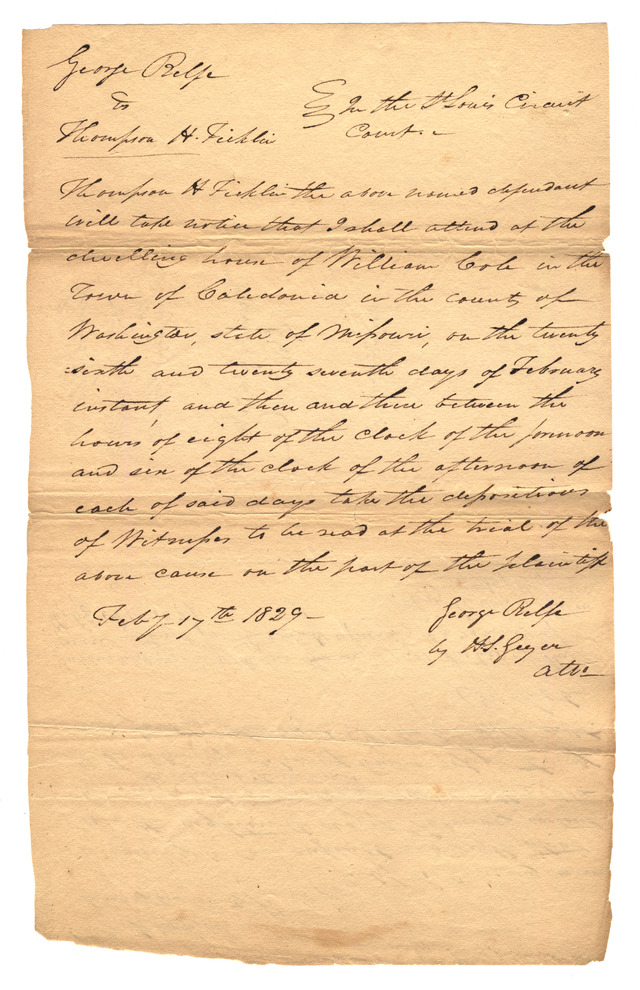 George Relfe
vs
Thompson H. Ficklin
In the St Louis Circuit
Court
Thompson H Ficklin the above named defendant
will take notice that I shall attend at the
dwelling house of William Cole in the
Town of Caledonia in the county of
Washington, state of Missouri, on the twenty
sixth and twenty seventh days of February
instant, and then and there between the
hours of eight of the clock of the forenoon
and six of the clock of the afternoon of
each of said days take the depositions
of Witnesses to be read at the trial of the
above cause on the part of the plaintiff
Feby 17th 1829
George Relfe
by H.S. Geyer
atto